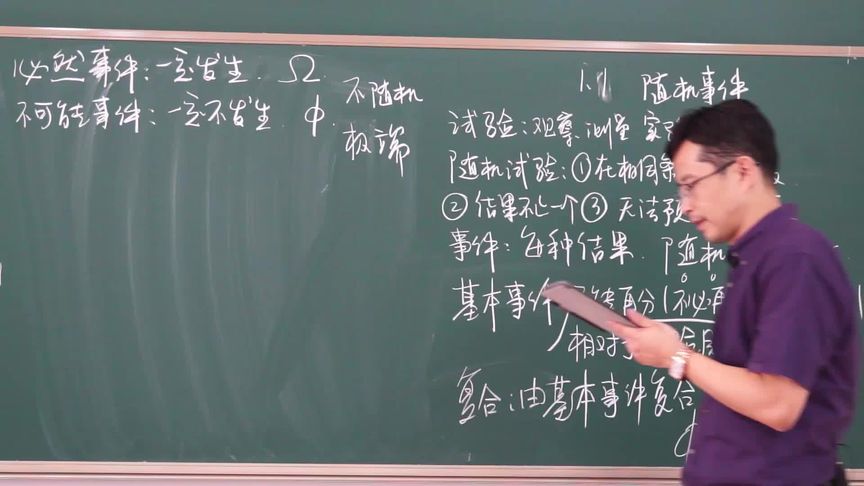 必然事件:一定发生. Ω.
不可能事件:一定不发生. φ.
不随机
极端
1.1 随机事件
试验:观察.测量
随机试验:①在相同
②结果不止一个③无法预
事件:每种结果. 随机
基本事件 再分(不必再
相对
复合:由基本事件复合